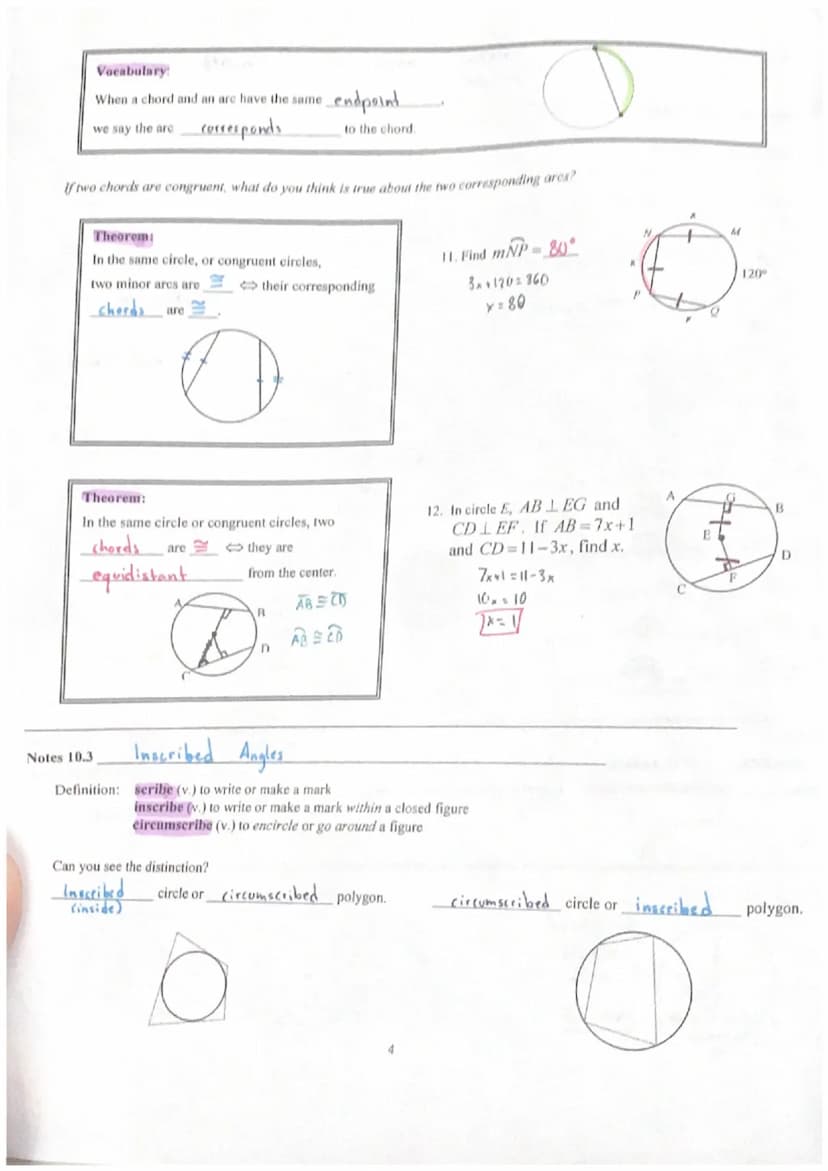 Vocabulary:
When a chord and an arc have the same endpoint.
we say the arc corresponds to the chord.
If two chords are congruent, what do you think is true about the two corresponding arcs?
Theorem:
In the same circle, or congruent circles,
two minor arcs are ≅ ⇔ their corresponding
chords are ≅.
11. Find mNP = 80°
3x+120=360
x=80
x
N
M
x
120°
P
Q
Theorem:
In the same circle or congruent circles, two
chords are ≅ ⇔ they are
equidistant from the center.
A
B
AB ≅ CD
D
AB ≅ CD
C
12. In circle E, AB ⊥ EG and
CD ⊥ EF. If AB = 7x+1
and CD = 11−3x, find x.
7x+1=11-3x
10x=10
x=1
A
G
B
E
D
C
F
Notes 10.3 Inscribed Angles
Definition: scribe (v.) to write or make a mark
inscribe (v.) to write or make a mark within a closed figure
circumscribe (v.) to encircle or go around a figure
Can you see the distinction?
Inscribed circle or circumscribed polygon.
(inside)
circumscribed circle or inscribed polygon.
4